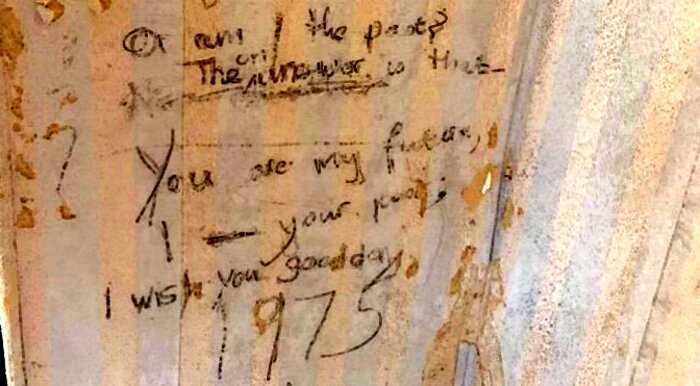 Or am I the past?
The only answer is that
You are my future,
I — your past;
I wish you good day,
1975